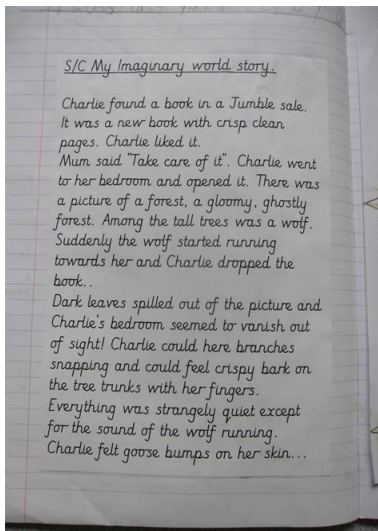 S/C My Imaginary world story.
Charlie found a book in a Jumble sale.
It was a new book with crisp clean
pages. Charlie liked it.
Mum said "Take care of it". Charlie went
to her bedroom and opened it. There was
a picture of a forest, a gloomy, ghostly
forest. Among the tall trees was a wolf.
Suddenly the wolf started running
towards her and Charlie dropped the
book..
Dark leaves spilled out of the picture and
Charlie's bedroom seemed to vanish out
of sight! Charlie could here branches
snapping and could feel crispy bark on
the tree trunks with her fingers.
Everything was strangely quiet except
for the sound of the wolf running.
Charlie felt goose bumps on her skin...